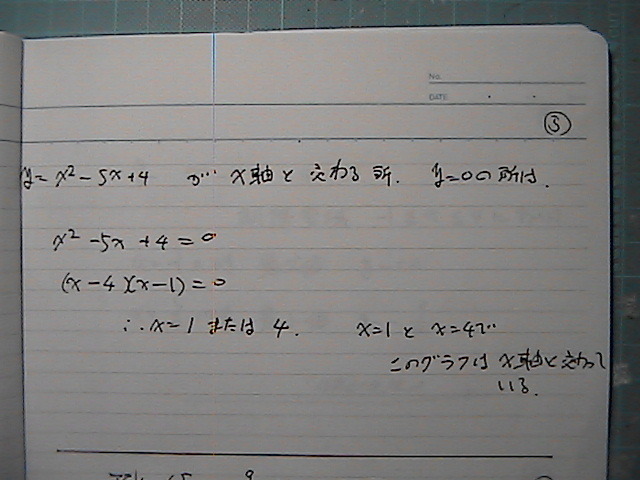 No.
DATE
③
y=x²-5x+4 が x軸と交わる所. y=0の所は.
x²-5x+4=0
(x-4)(x-1)=0
∴x=1 または 4. x=1と x=4で
このグラフは x軸と交わって
いる.